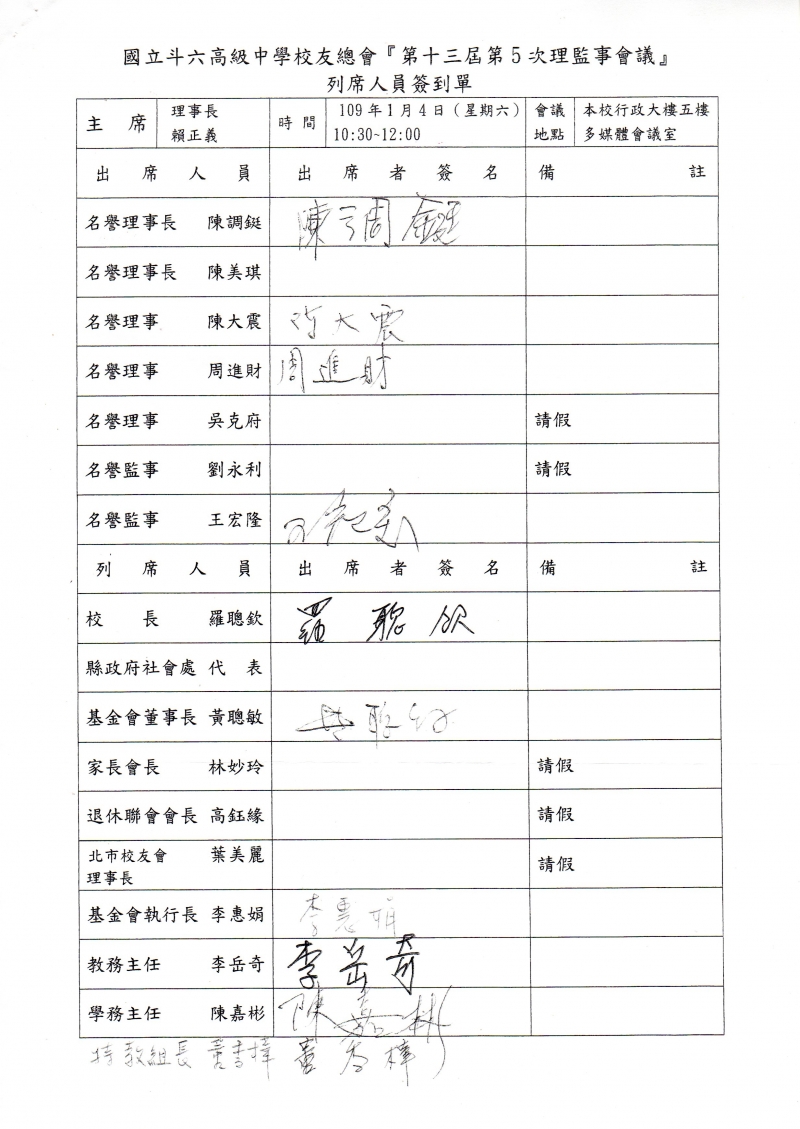 國立斗六高級中學校友總會『第十三屆第5次理監事會議』
列席人員簽到單
主席 理事長 賴正義 時間 109年1月4日（星期六） 10:30~12:00 會議地點 本校行政大樓五樓 多媒體會議室
出席人員 出席者簽名 備註
名譽理事長 陳調鋌 陳調鋌
名譽理事長 陳美琪
名譽理事 陳大震 陳大震
名譽理事 周進財 周進財
名譽理事 吳克府 請假
名譽監事 劉永利 請假
名譽監事 王宏隆
列席人員 出席者簽名 備註
校長 羅聰欽 羅聰欽
縣政府社會處 代表
基金會董事長 黃聰敏
家長會長 林妙玲 請假
退休聯會會長 高鈺緣 請假
北市校友會理事長 葉美麗 請假
基金會執行長 李惠娟 李惠娟
教務主任 李岳奇 李岳奇
學務主任 陳嘉彬 陳嘉彬
特教組長